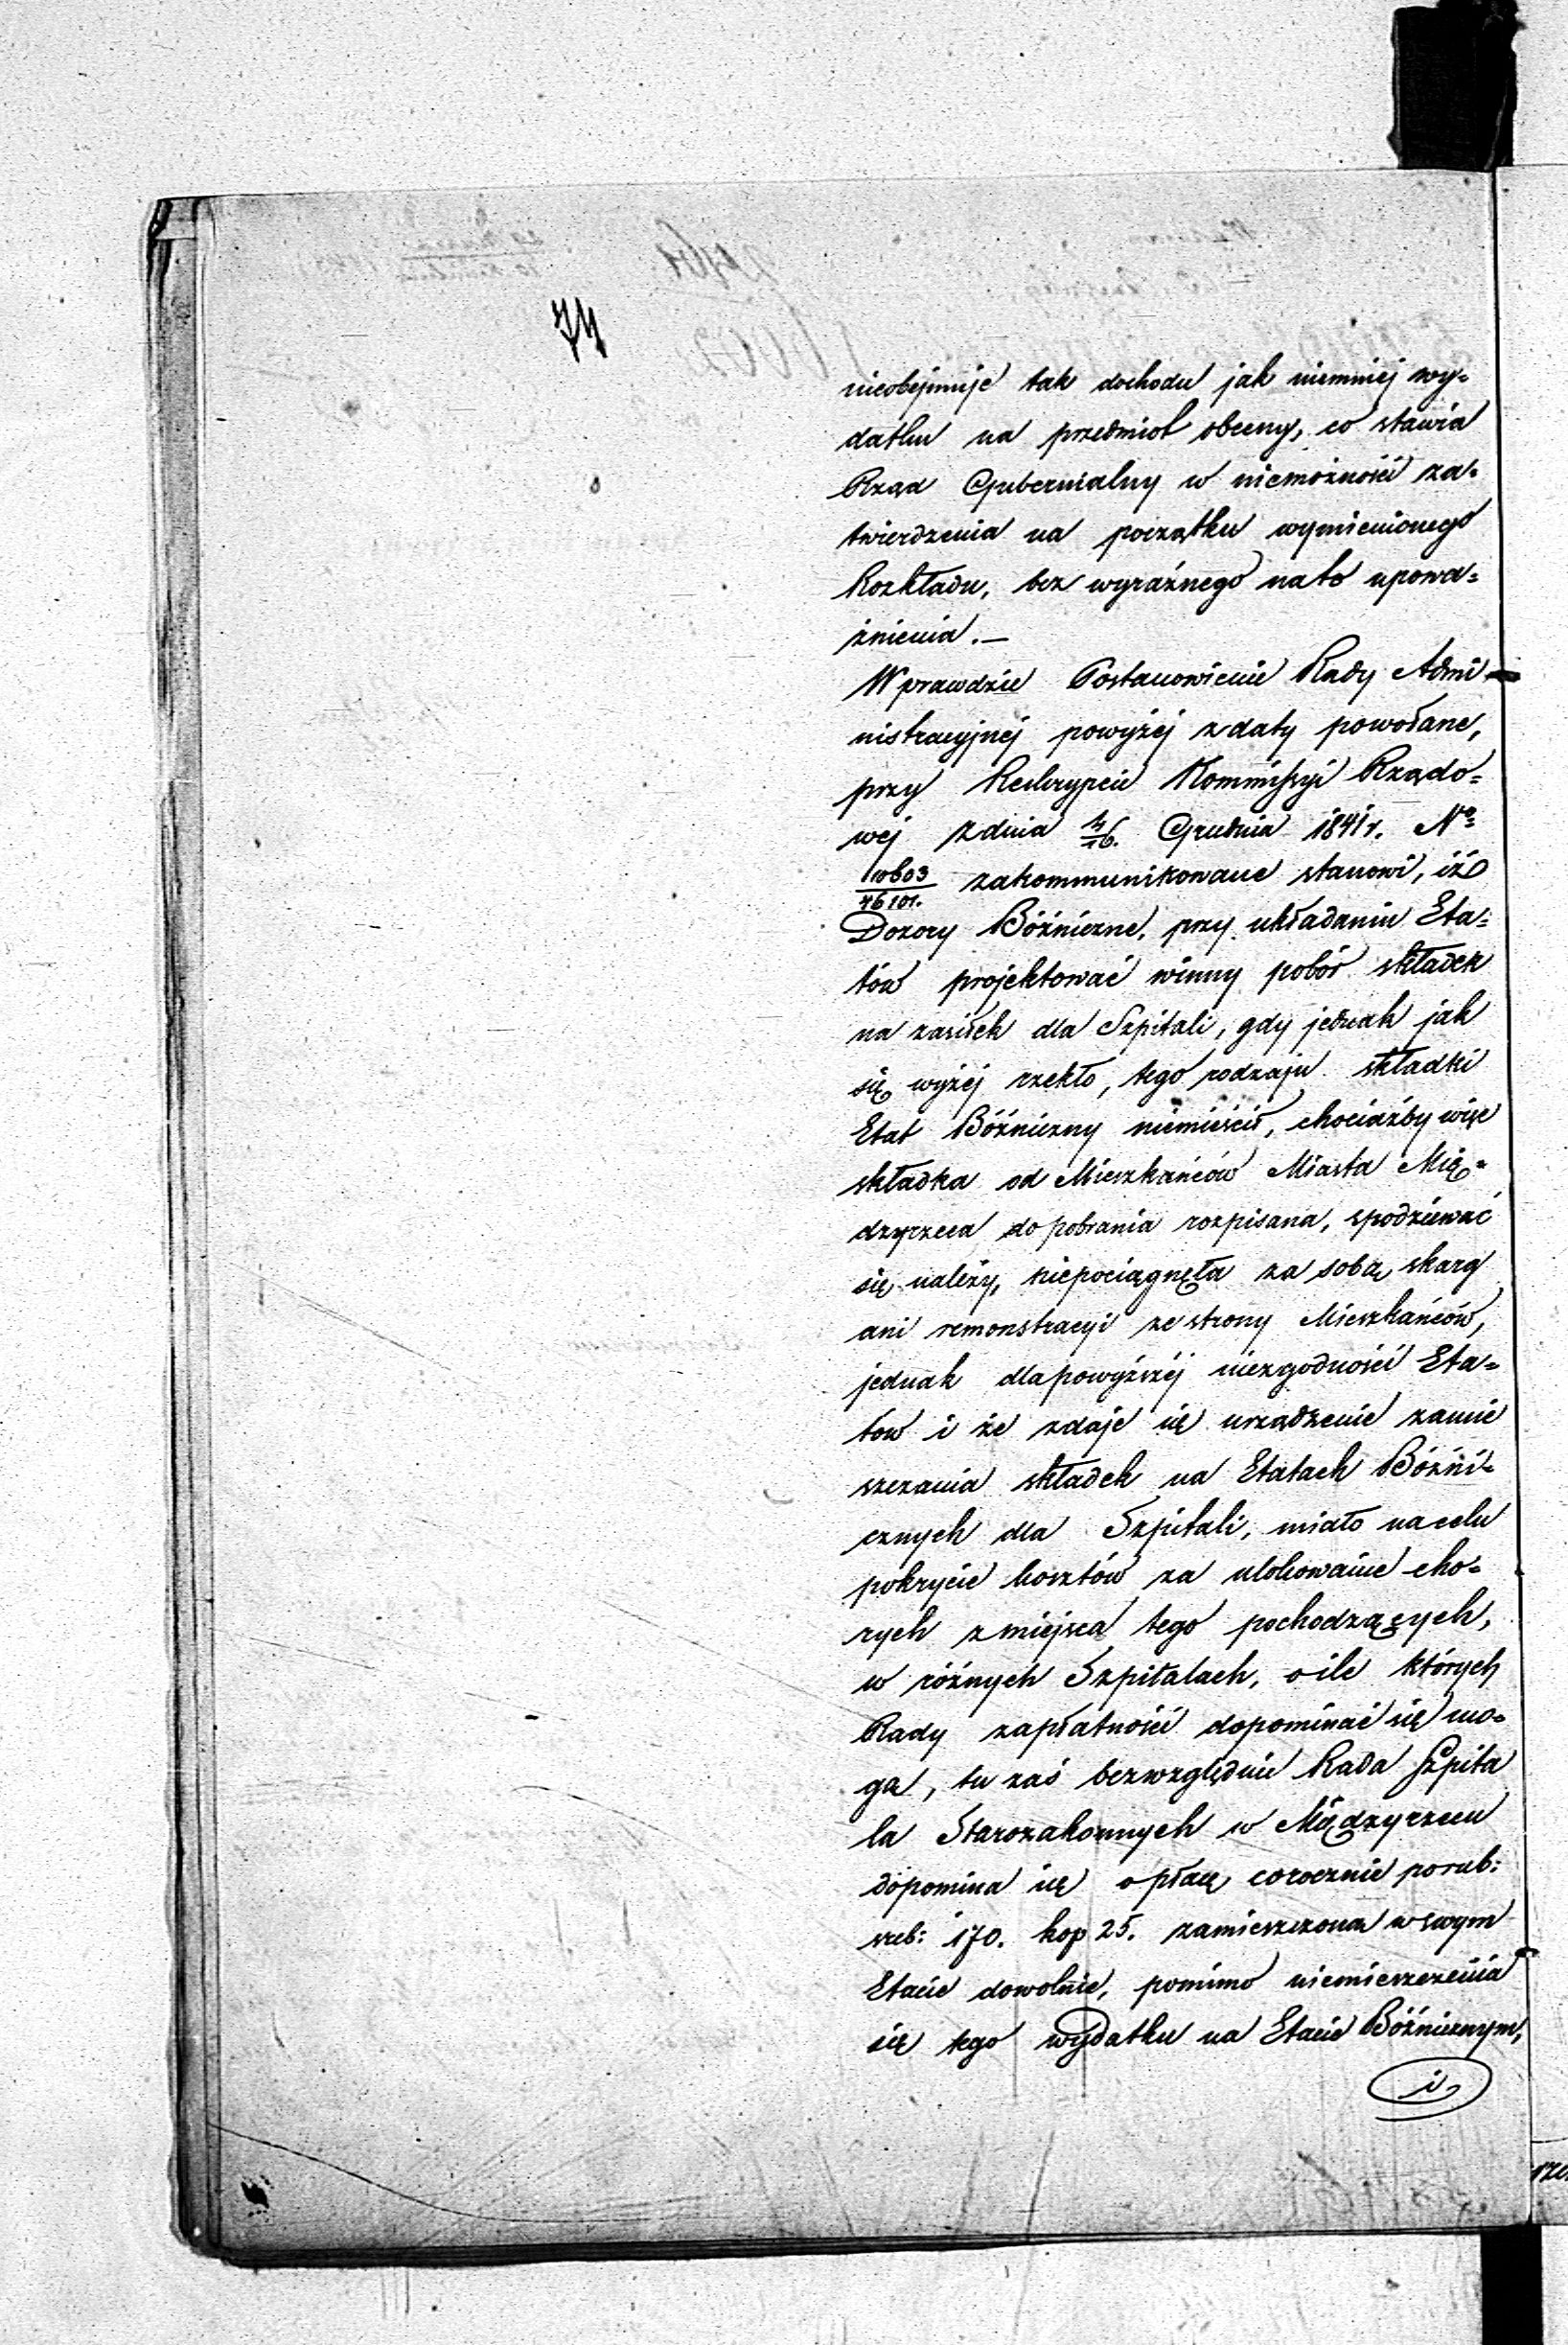 74
nieobejmuje tak dochodu jak niemniej wy=
datku na przedmiot obecny, co stawia
Rząd Gubernialny w niemożności za=
twierdzenia na początku wymienionego
Rozkładu, bez wyraźnego nato upowa=
żnienia.—
Wprawdzie Postanowienie Rady Admi
nistracyjnej powyżej z daty powołane,
przy Reskrypcie Kommissyi Rządo=
wej z dnia 4/16. Grudnia 1841 r. No
/46101. zakommunikowane stanowi, iż
Dozory Bóżnicze, przy układaniu Eta=
tów projektować winny pobór składek
na zasiłek dla Szpitali, gdy jednak jak
się wyżej rzekło, tego rodzaju składki
Etat Bóżniczny niemieścił, chociażby więc
składka od Mieszkańców Miasta Mię=
dzyrzeca do pobrania rozpisana, spodziewać
się należy, niepociągnęła za sobą skarg
ani remonstracyi ze strony Mieszkańców,
jednak dla powyższej niezgodności Eta=
tow i że zdaje się urządzenie zamie
szczania składek na Etatach Bóżni=
cznych dla Szpitali, miało na celu
pokrycie kosztów za ulokowanie cho=
rych z miejsca tego pochodzących,
w różnych Szpitalach, o ile których
Rady zapłatności dopominać się mo=
ga, tu zaś bezwzględnie Rada Szpita
la Starozakonnych w Międzyrzecu
dopomina się o płacę corocznie po rub:
sreb: 170. kop 25. zamieszczona w swym
Etacie dowolnie, pomimo niemieszczenia
się tego wydatku na Etacie Bóźnicznym,
i